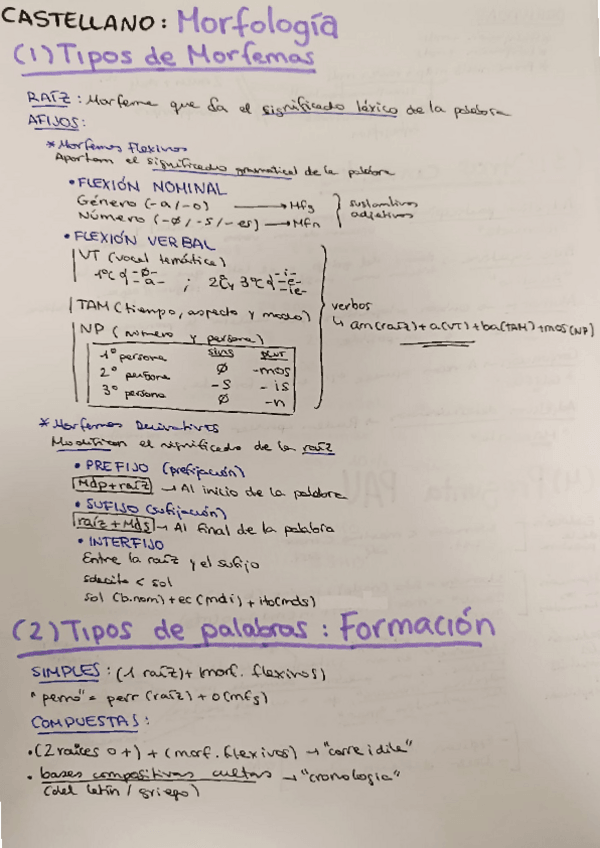 CASTELLANO: Morfología
(1) Tipos de Morfemas
RAÍZ: Morfema que da el significado léxico de la palabra
AFIJOS:
* Morfemas flexivos
Aportam el significado gramatical de la palabra
• FLEXIÓN NOMINAL
Género (-a/-o) → Mfg
Número (-ø/-s/-es) → Mfn
sustantivos
adjetivos
• FLEXIÓN VERBAL
VT (vocal temática)
1ªC -ø- -a- ; 2ªC y 3ªC -i- -e- -ie-
TAM (tiempo, aspecto y modo)
NP (número y persona)
verbos
↳ am(raíz)+a(VT)+ba(TAM)+mos(NP)
sing plur
1º persona ø -mos
2º persona -s -is
3º persona ø -n
* Morfemas Derivativos
Modifican el significado de la raíz
• PREFIJO (prefijación)
Mdp+raíz → Al inicio de la palabra
• SUFIJO (sufijación)
raíz+Mds → Al final de la palabra
• INTERFIJO
Entre la raíz y el sufijo
solecito < sol
sol (b.nom)+ec(mdi)+ito(mds)
(2) Tipos de palabras: Formación
SIMPLES: (1 raíz)+(morf. flexivos)
"perro" = perr(raíz)+o(mfg)
COMPUESTAS:
• (2 raíces o+)+(morf. flexivos) → "correidile"
• bases compositivas cultas → "cronologia"
(del latín / griego)